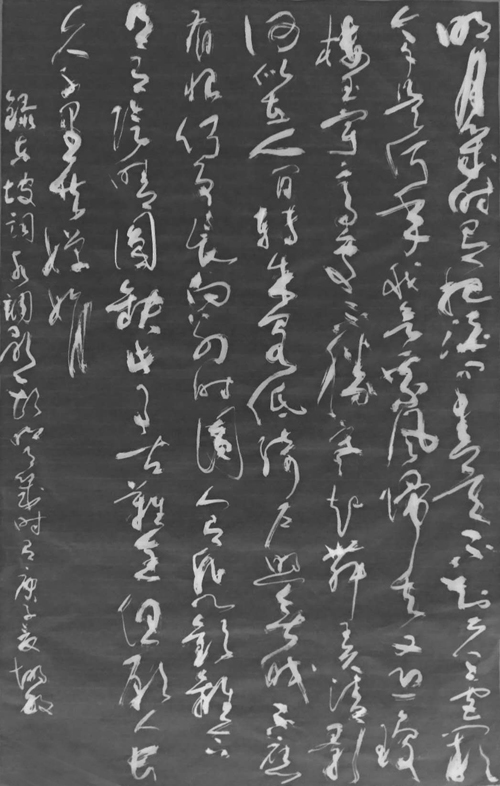 明月幾時有把酒問青天不知天上宮闕
今夕是何年我欲乘風歸去又恐瓊
樓玉宇高處不勝寒起舞弄清影
何似在人間轉朱閣低綺戶照無眠不應
有恨何事長向別時圓人有悲歡離合
月有陰晴圓缺此事古難全但願人長
久千里共嬋娟
錄東坡詞水調歌頭明月幾時有庚子夏